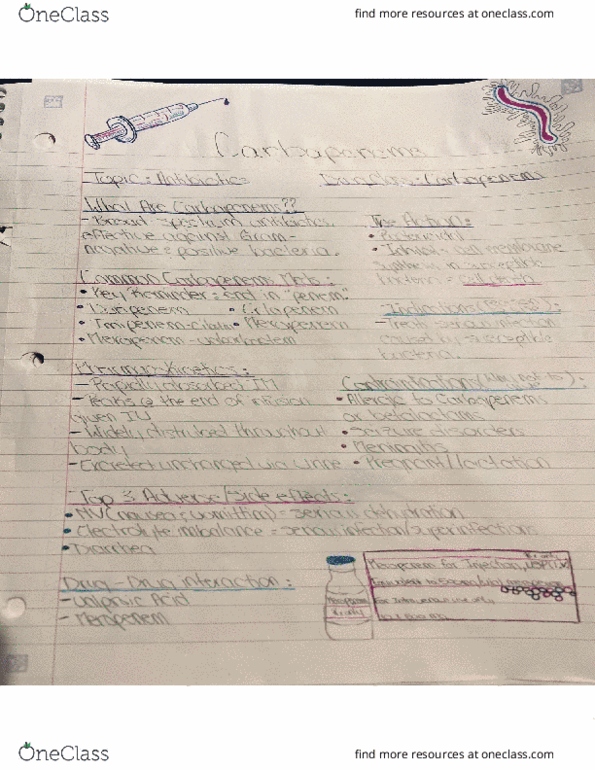 OneClass
find more resources at oneclass.com
Carbapenems
- Topic: Antibiotics
Drug Class: Carbapenems
What Are Carbapenems??
- Broad spectrum antibiotics
effective against Gram-
negative & positive bacteria.
The Action:
• Bactericidal
• Inhibits cell membrane
synthesis in susceptible
bacteria =
Common Carbapenems Meds:
• Key Reminder: End in "penem."
• Ertapenem
• Imipenem-cilastatin • Meropenem
• Meropenem - vaborbactam
Indications (uses):
- Treats serious infection
caused by susceptible
bacteria.
Pharmacokinetics:
- Rapidly absorbed IM
- Peaks @ the end of infusion
given IV
- Widely distributed throughout
body
- Excreted unchanged via urine
Contraindication (Who not to):
• Allergic to Carbapenems
or betalactams
• Seizure disorders
• Meningitis
• Pregnant/lactation
Top 3 Adverse/Side effects:
• NV (nausea & vomitting) = serious dehydration
• Electrolyte imbalance = serious infection/superinfections
• Diarrhea
Drug-Drug interaction:
- Valproic Acid
- Meropenem
Meropenem for Injection, USP
For Intravenous use only
OneClass
find more resources at oneclass.com